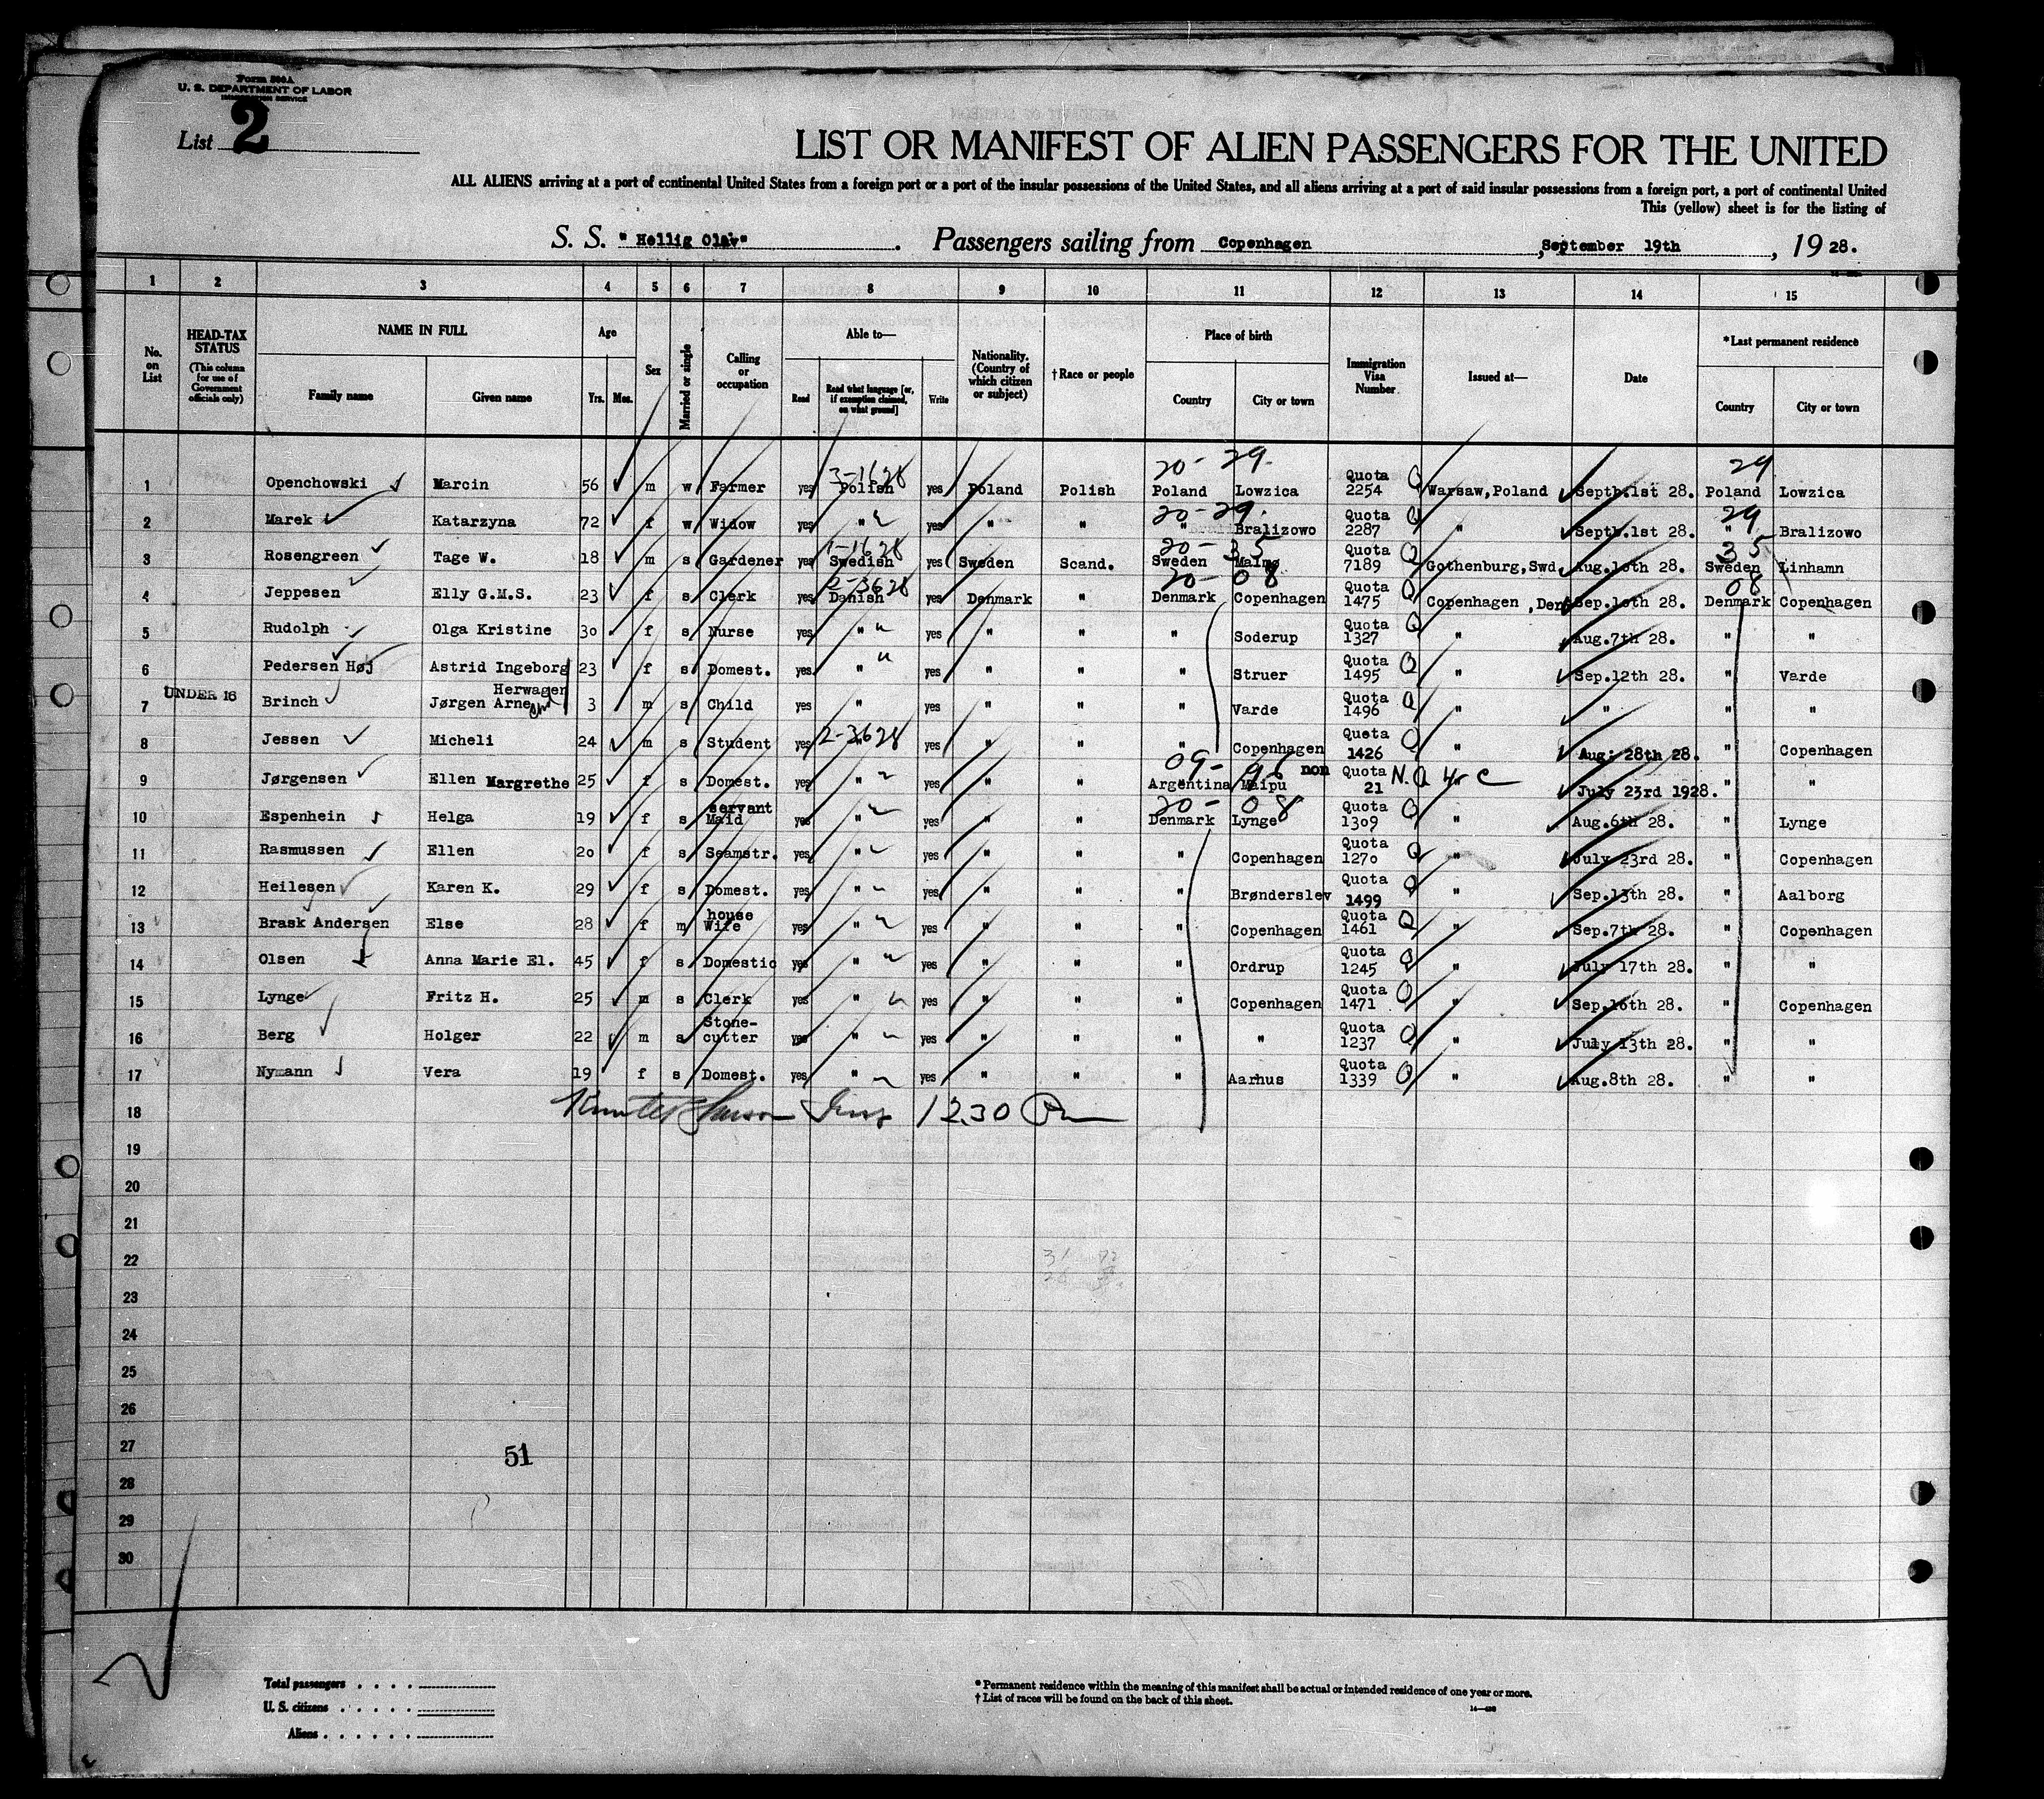 Form 500A
U. S. DEPARTMENT OF LABOR
IMMIGRATION SERVICE
List 2
LIST OR MANIFEST OF ALIEN PASSENGERS FOR THE UNITED
ALL ALIENS arriving at a port of continental United States from a foreign port or a port of the insular possessions of the United States, and all aliens arriving at a port of said insular possessions from a foreign port, a port of continental United
This (yellow) sheet is for the listing of
S. S. "Hellig Olav". Passengers sailing from Copenhagen, September 19th, 1928.
1 2 3 4 5 6 7 8 9 10 11 12 13 14 15
No. on List
HEAD-TAX STATUS
(This column for use of Government officials only)
NAME IN FULL
Family name Given name
Age
Yrs. Mos.
Sex
Married or single
Calling or occupation
Able to—
Read Read what language [or, if exemption claimed, on what ground] Write
Nationality. (Country of which citizen or subject)
†Race or people
Place of birth
Country City or town
Immigration Visa Number
Issued at—
Date
*Last permanent residence
Country City or town
20- 29. 29
1 Openchowski Marcin 56 m w Farmer yes Polish 3-1628 yes Poland Polish Poland Lowzica Quota 2254 Q Warsaw, Poland Septb.1st 28. Poland Lowzica
20-29. 29
2 Marek Katarzyna 72 f w Widow yes " yes " " " Bralizowo Quota 2287 Q " Septb.1st 28. " Bralizowo
20- 35 35
3 Rosengreen Tage W. 18 m s Gardener yes Swedish 1-1628 yes Sweden Scand. Sweden Malmø Quota 7189 Q Gothenburg, Swd. Aug.10th 28. Sweden Linhamn
20- 08 08
4 Jeppesen Elly G.M.S. 23 f s Clerk yes Danish 2-3628 yes Denmark " Denmark Copenhagen Quota 1475 Q Copenhagen, Den. Sep.10th 28. Denmark Copenhagen
5 Rudolph Olga Kristine 30 f s Nurse yes " yes " " " Soderup Quota 1327 Q " Aug.7th 28. " "
6 Pedersen Høj Astrid Ingeborg 23 f s Domest. yes " yes " " " Struer Quota 1495 Q " Sep.12th 28. " Varde
UNDER 16
7 Brinch Jørgen Arne Herwagen 3 m s Child yes " yes " " " Varde Quota 1496 Q " " " "
8 Jessen Micheli 24 m s Student yes " 2-3628 yes " " " Copenhagen Quota 1426 Q " Aug: 28th 28. " Copenhagen
09-
9 Jørgensen Ellen Margrethe 25 f s Domest. yes " yes " " Argentina Maipu non Quota 21 N.Q 4 c " July 23rd 1928. " "
20- 08
10 Espenhein Helga 19 f s servant Maid yes " yes " " Denmark Lynge Quota 1309 Q " Aug.6th 28. " Lynge
11 Rasmussen Ellen 20 f s Seamstr. yes " yes " " " Copenhagen Quota 1270 Q " July 23rd 28. " Copenhagen
12 Heilesen Karen K. 29 f s Domest. yes " yes " " " Brønderslev Quota 1499 Q " Sep.13th 28. " Aalborg
13 Brask Andersen Else 28 f m house Wife yes " yes " " " Copenhagen Quota 1461 Q " Sep.7th 28. " Copenhagen
14 Olsen Anna Marie El. 45 f s Domestic yes " yes " " " Ordrup Quota 1245 Q " July 17th 28. " "
15 Lynge Fritz H. 25 m s Clerk yes " yes " " " Copenhagen Quota 1471 Q " Sep.16th 28. " Copenhagen
16 Berg Holger 22 m s Stone-cutter yes " yes " " " " Quota 1237 Q " July 13th 28. " "
17 Nymann Vera 19 f s Domest. yes " yes " " " Aarhus Quota 1339 Q " Aug.8th 28. " "
18 Insp 1230 Pm
19
20
21
22
23
24
25
26
27
51
28
29
30
Total passengers . . . .
U. S. citizens . . . . .
Aliens . . . . . .
* Permanent residence within the meaning of this manifest shall be actual or intended residence of one year or more.
† List of races will be found on the back of this sheet.